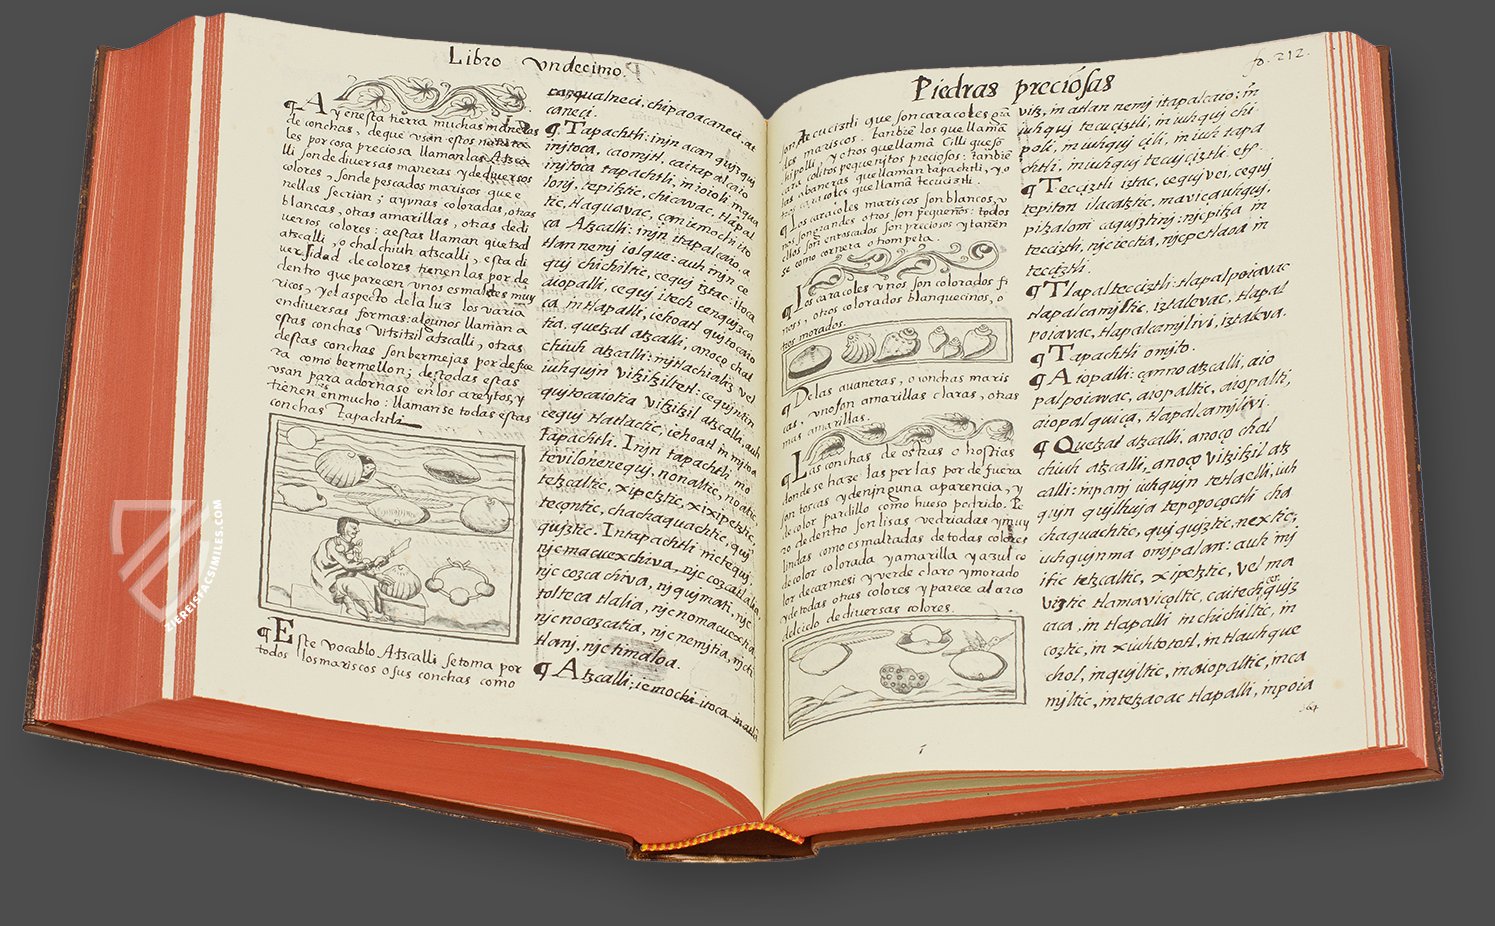 Libro Vndecimo.
¶ Ay enesta tierra muchas maneras
de conchas, deque vsan estos
les por cosa preciosa llamonlas Atzca
lli son de diuersas maneras y dediuersos
colores, son de pescados mariscos que e
nellas secrian; ay vnas coloradas, otras
blancas, otras amarillas, otras dedi
uersos colores: aestas llaman quetzal
atzcalli, o chalchiuh atzcalli, esta di
uersidad de colores tienen las por de
dentro que parecen vnos esmaltes muy
ricos, y el aspecto dela luz los varia
endiuersas formas: algunos llaman a
estas conchas vitzitzil atzcalli, otras
destas conchas son bermejas por de fue
ra como bermellon; de todas estas
vsan para adornaso en los areytos, y
tienen en mucho: llamanse todas estas
conchas tapachtli
¶ Este vocablo Atzcalli se toma por
todos los mariscos o sus conchas como
cenqualneci, chipaoacaneci,
caneci.
¶ Tapachtli: injn acan qujzquj
injtoca, caomjtl, caitapalcaio
injtoca tapachtli, in ioioli
lonj, tepitztic, chicavac, tlapal
tic, tlaquavac, çan iemochi ito
ca Atzcalli: injn itapalcaio, a
tlan nemj iolque: auh injn ce
quj chichiltic, cequj iztac: itoca
aiopalli, cequj itech cenqujzca
ca in tlapalli, iehoatl qujtocaiotia
tia. quetzal atzcalli, anoço chal
chiuh atzcalli: injtlachializ vel
iuhqujn vitzitziltetl: cequjntin
qujtocaiotia vitzitzil atzcalli, auh
cequj tlatlactic, iehoatl in mjtoa
tapachtli. Injn tapachtli, mo
toviloteneequj, nonaltic, noatic,
tetzcaltic, xipetztic, xixipetztic,
tecontic, chachaquachtic, quj
qujztic. Intapachtli inctequj,
njc macuexchiva, njc cozcatilalia,
njc cozcachiva, njqujmati, njc
tolteca tlalia, njc nomacuextia
njc nocozcatia, njc nemjtia, njcti
tlanj, njc tlmaloa.
¶ Atzcalli; ie mochi itoca
Piedras preciosas
fo. 212.
Tecuciztli que son caracoles
des mariscos. tanbiē los que llamā
chipolli, y otros quellamā Cilli queso
cara colitos pequenjtos preciosos: tanbiē
las abaneras quellaman tapachtli, y o
tros caracoles quellamā tecuciztli.
¶ Los caracoles mariscos son blancos, y
vnos son grandes otros son pequeños: todos
ellos son enroscados son preciosos y tañen
se como corneta o trompeta.
¶ Los caracoles vnos son colorados fi
nos, otros colorados blanquecinos, o
tros morados.
¶ Delas auaneras, o conchas maris
cas, vnos son amarillas claras, otras
mas amarillas.
¶ Las conchas de ostras o hostias
donde se haze las perlas por de fuera
son toscas y denjnguna aparencia, y
de color pardillo como hueso podrido. Pe
ro de dentro son lisas vedriadas y muy
lindas como esmaltadas de todas colores
de color colorada y amarilla y azul co
lor de carmesi y verde claro y morado
y de todas otras colores y parece al arco
del cielo de diuersas colores.
vitz, in atlan nemj itapalcaio: in
iuhquj tecuciztli, in iuhquj chi
poli, in iuhquj cili, in iuh tapa
chtli, in iuhquj tecuciztli. etc.
¶ Tecciztli iztac, cequj vei, cequj
tepiton ilacatztic, maviçauhquj,
pitzaloni caqujztinj: njcpitza in
tecciztli, njc iectia, njcpetlaoa in
tecciztli.
¶ Tlapaltecciztli: tlapalpoiavac
tlapalcamjltic, iztalevac, tlapal
poiavac, tlapalcamjlivi, iztaleva.
¶ Tapachtli omjto.
¶ Atopalli: çanno atzcalli, aio
palpoiavac, aiopaltic, aiopalti,
aiopalquiça, tlapalcamjlivi.
¶ Quetzal atzcalli, anoço chal
chiuh atzcalli, anoço vitzitzil atz
calli: inpanj iuhqujn tetlaelli, iuh
qujn qujlhuja tepopococtli cha
chaquachtic, quj qujztic, nextic;
iuhqujnma omjpalan: auh inj
itic tetzcaltic, xipetztic, vel ma
viztic tlamaviçoltic, caitech quiz
caca, in tlapalli in chichiltic, in
coztic, in xiuhtototl, in tlauhque
chol, inqujltic, in aiopaltic, inca
mjltic, intetzaoac tlapalli, inpoia
364
ZIEREISFACSIMILES.COM